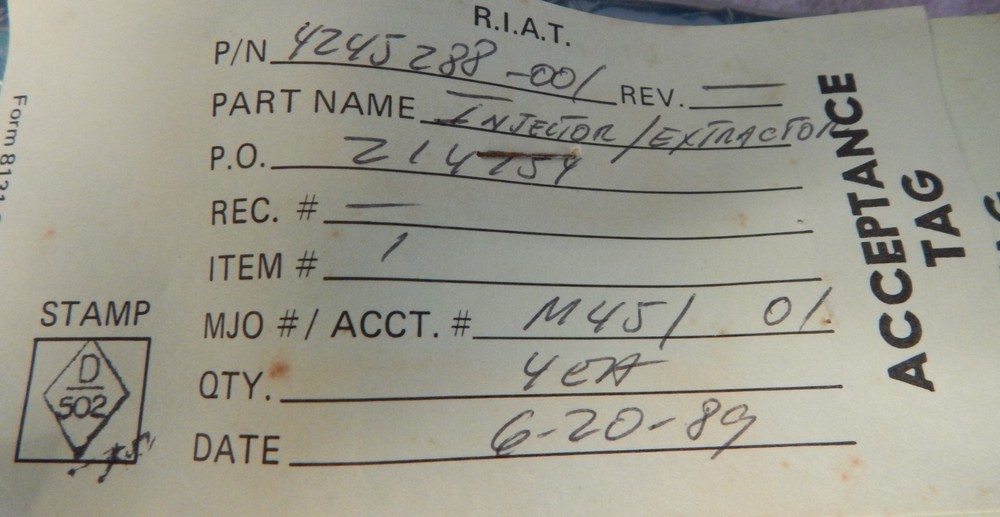 R.I.A.T.
P/N 4245288-001 REV. —
PART NAME INJECTOR/EXTRACTOR
P.O. 214754
REC. # —
ITEM # 1
MJO #/ ACCT. # M451 01
QTY. 4 EA
DATE 6-20-89
STAMP
D
502
ACCEPTANCE
TAG